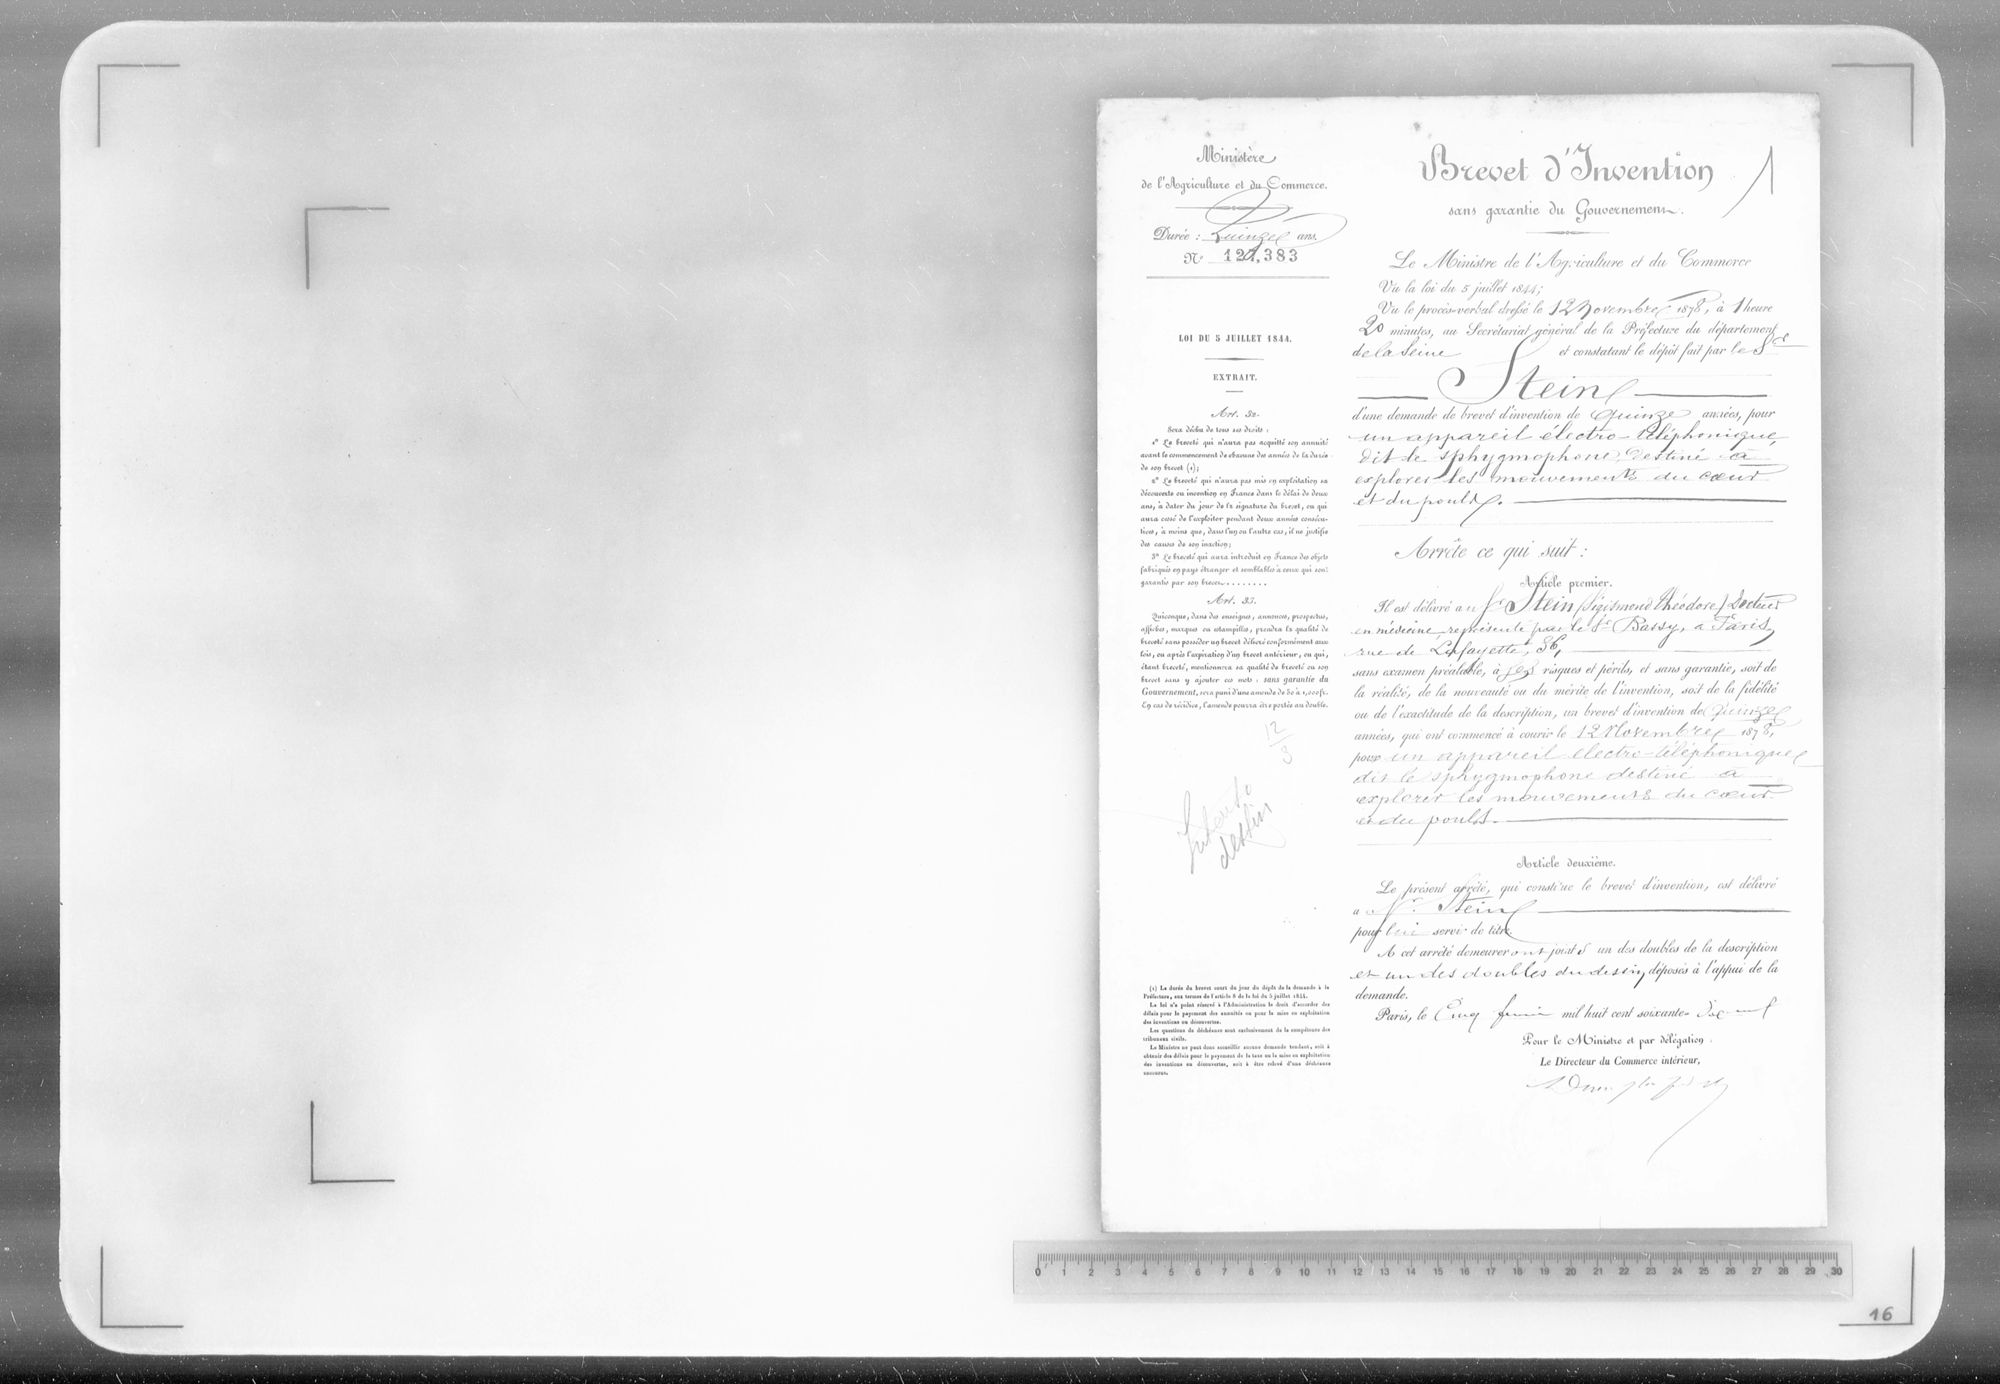 Ministère
de l'Agriculture et du Commerce.
Durée : Quinze ans.
N° 121,383
LOI DU 5 JUILLET 1844.
EXTRAIT.
Art. 32.
Sera déchu de tous ses droits :
1° Le breveté qui n'aura pas acquitté son annuité
avant le commencement de chacune des années de la durée
de son brevet (1);
2° Le breveté qui n'aura pas mis en exploitation sa
découverte ou invention en France dans le délai de deux
ans, à dater du jour de la signature du brevet, ou qui
aura cessé de l'exploiter pendant deux années consécu-
tives, à moins que, dans l'un ou l'autre cas, il ne justifie
des causes de son inaction;
3° Le breveté qui aura introduit en France des objets
fabriqués en pays étranger et semblables à ceux qui sont
garantis par son brevet.........
Art. 33.
Quiconque, dans des enseignes, annonces, prospectus,
affiches, marques ou estampilles, prendra la qualité de
breveté sans posséder un brevet délivré conformément aux
lois, ou après l'expiration d'un brevet antérieur, ou qui,
étant breveté, mentionnera sa qualité de breveté ou son
brevet sans y ajouter ces mots : sans garantie du
Gouvernement, sera puni d'une amende de 50 à 1,000 fr.
En cas de récidive, l'amende pourra être portée au double.
12
3
dessin
(1) La durée du brevet court du jour du dépôt de la demande à la
Préfecture, aux termes de l'article 8 de la loi du 5 juillet 1844.
La loi n'a point réservé à l'Administration le droit d'accorder des
délais pour le payement des annuités ou pour la mise en exploitation
des inventions ou découvertes.
Les questions de déchéance sont exclusivement de la compétence des
tribunaux civils.
Le Ministre ne peut donc accueillir aucune demande tendant, soit à
obtenir des délais pour le payement de la taxe ou la mise en exploitation
des inventions ou découvertes, soit à être relevé d'une déchéance
encourue.
Brevet d'Invention
1
sans garantie du Gouvernement.
Le Ministre de l'Agriculture et du Commerce
Vu la loi du 5 juillet 1844;
Vu le procès-verbal dressé le 12 Novembre 1878, à 1 heure
20 minutes, au Secrétariat général de la Préfecture du département
de la Seine et constatant le dépôt fait par le Sr
Stein
d'une demande de brevet d'invention de quinze années, pour
un appareil électro-téléphonique,
dit le sphygmophone, destiné à
explorer les mouvements du cœur
et du pouls.
Arrête ce qui suit :
Article premier.
Il est délivré au Sr Stein (Sigismond Théodore) Docteur
en médecine, représenté par le Sr Bassy, à Paris,
rue de Lafayette, 36,
sans examen préalable, à ses risques et périls, et sans garantie, soit de
la réalité, de la nouveauté ou du mérite de l'invention, soit de la fidélité
ou de l'exactitude de la description, un brevet d'invention de quinze
années, qui ont commencé à courir le 12 Novembre 1878,
pour un appareil électro-téléphonique
dit le sphygmophone destiné à
explorer les mouvements du cœur
et du pouls.
Article deuxième.
Le présent arrêté, qui constitue le brevet d'invention, est délivré
au Sr Stein
pour lui servir de titre.
A cet arrêté demeureront joints un des doubles de la description
et un des doubles du dessin, déposés à l'appui de la
demande.
Paris, le Cinq mil huit cent soixante-dix-neuf
Pour le Ministre et par délégation :
Le Directeur du Commerce intérieur,
0 1 2 3 4 5 6 7 8 9 10 11 12 13 14 15 16 17 18 19 20 21 22 23 24 25 26 27 28 29 30
16